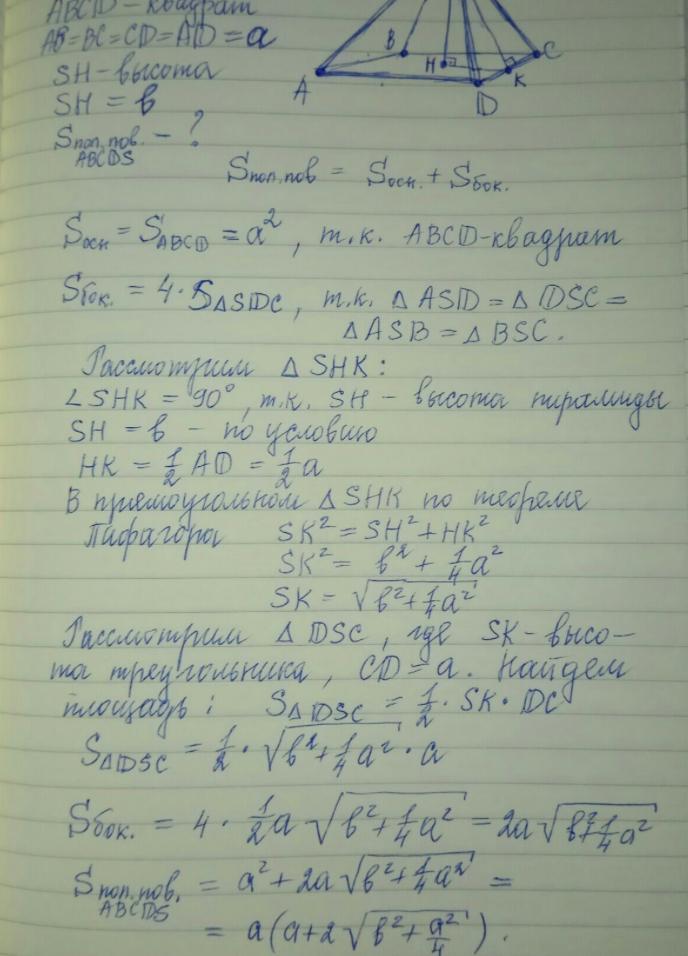 ABCD - квадрат
AB = BC = CD = AD = a
SH - высота
SH = в
Sпол. пов. ABCDS - ?
A B C D H K
Sпол. пов = Sосн. + Sбок.
Sосн = S ABCD = a², т.к. ABCD - квадрат
Sбок. = 4 · S△SDC, т.к. △ASD = △DSC =
△ASB = △BSC.
Рассмотрим △SHK:
∠SHK = 90°, т.к. SH - высота пирамиды
SH = в - по условию
HK = 1/2 AD = 1/2 a
В прямоугольном △SHK по теореме
Пифагора SK² = SH² + HK²
SK² = в² + 1/4 a²
SK = √(в² + 1/4 a²)
Рассмотрим △DSC, где SK - высо-
та треугольника, CD = a. Найдем
площадь: S△DSC = 1/2 · SK · DC
S△DSC = 1/2 · √(в² + 1/4 a²) · a
Sбок. = 4 · 1/2 a √(в² + 1/4 a²) = 2a √(в² + 1/4 a²)
Sпол. пов. ABCDS = a² + 2a √(в² + 1/4 a²) =
= a(a + 2 √(в² + a²/4)).